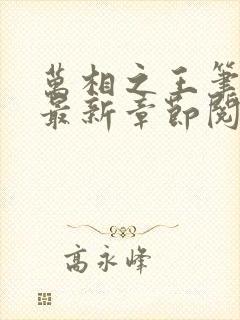 萬相之王筆
最新章節閱
高永峰